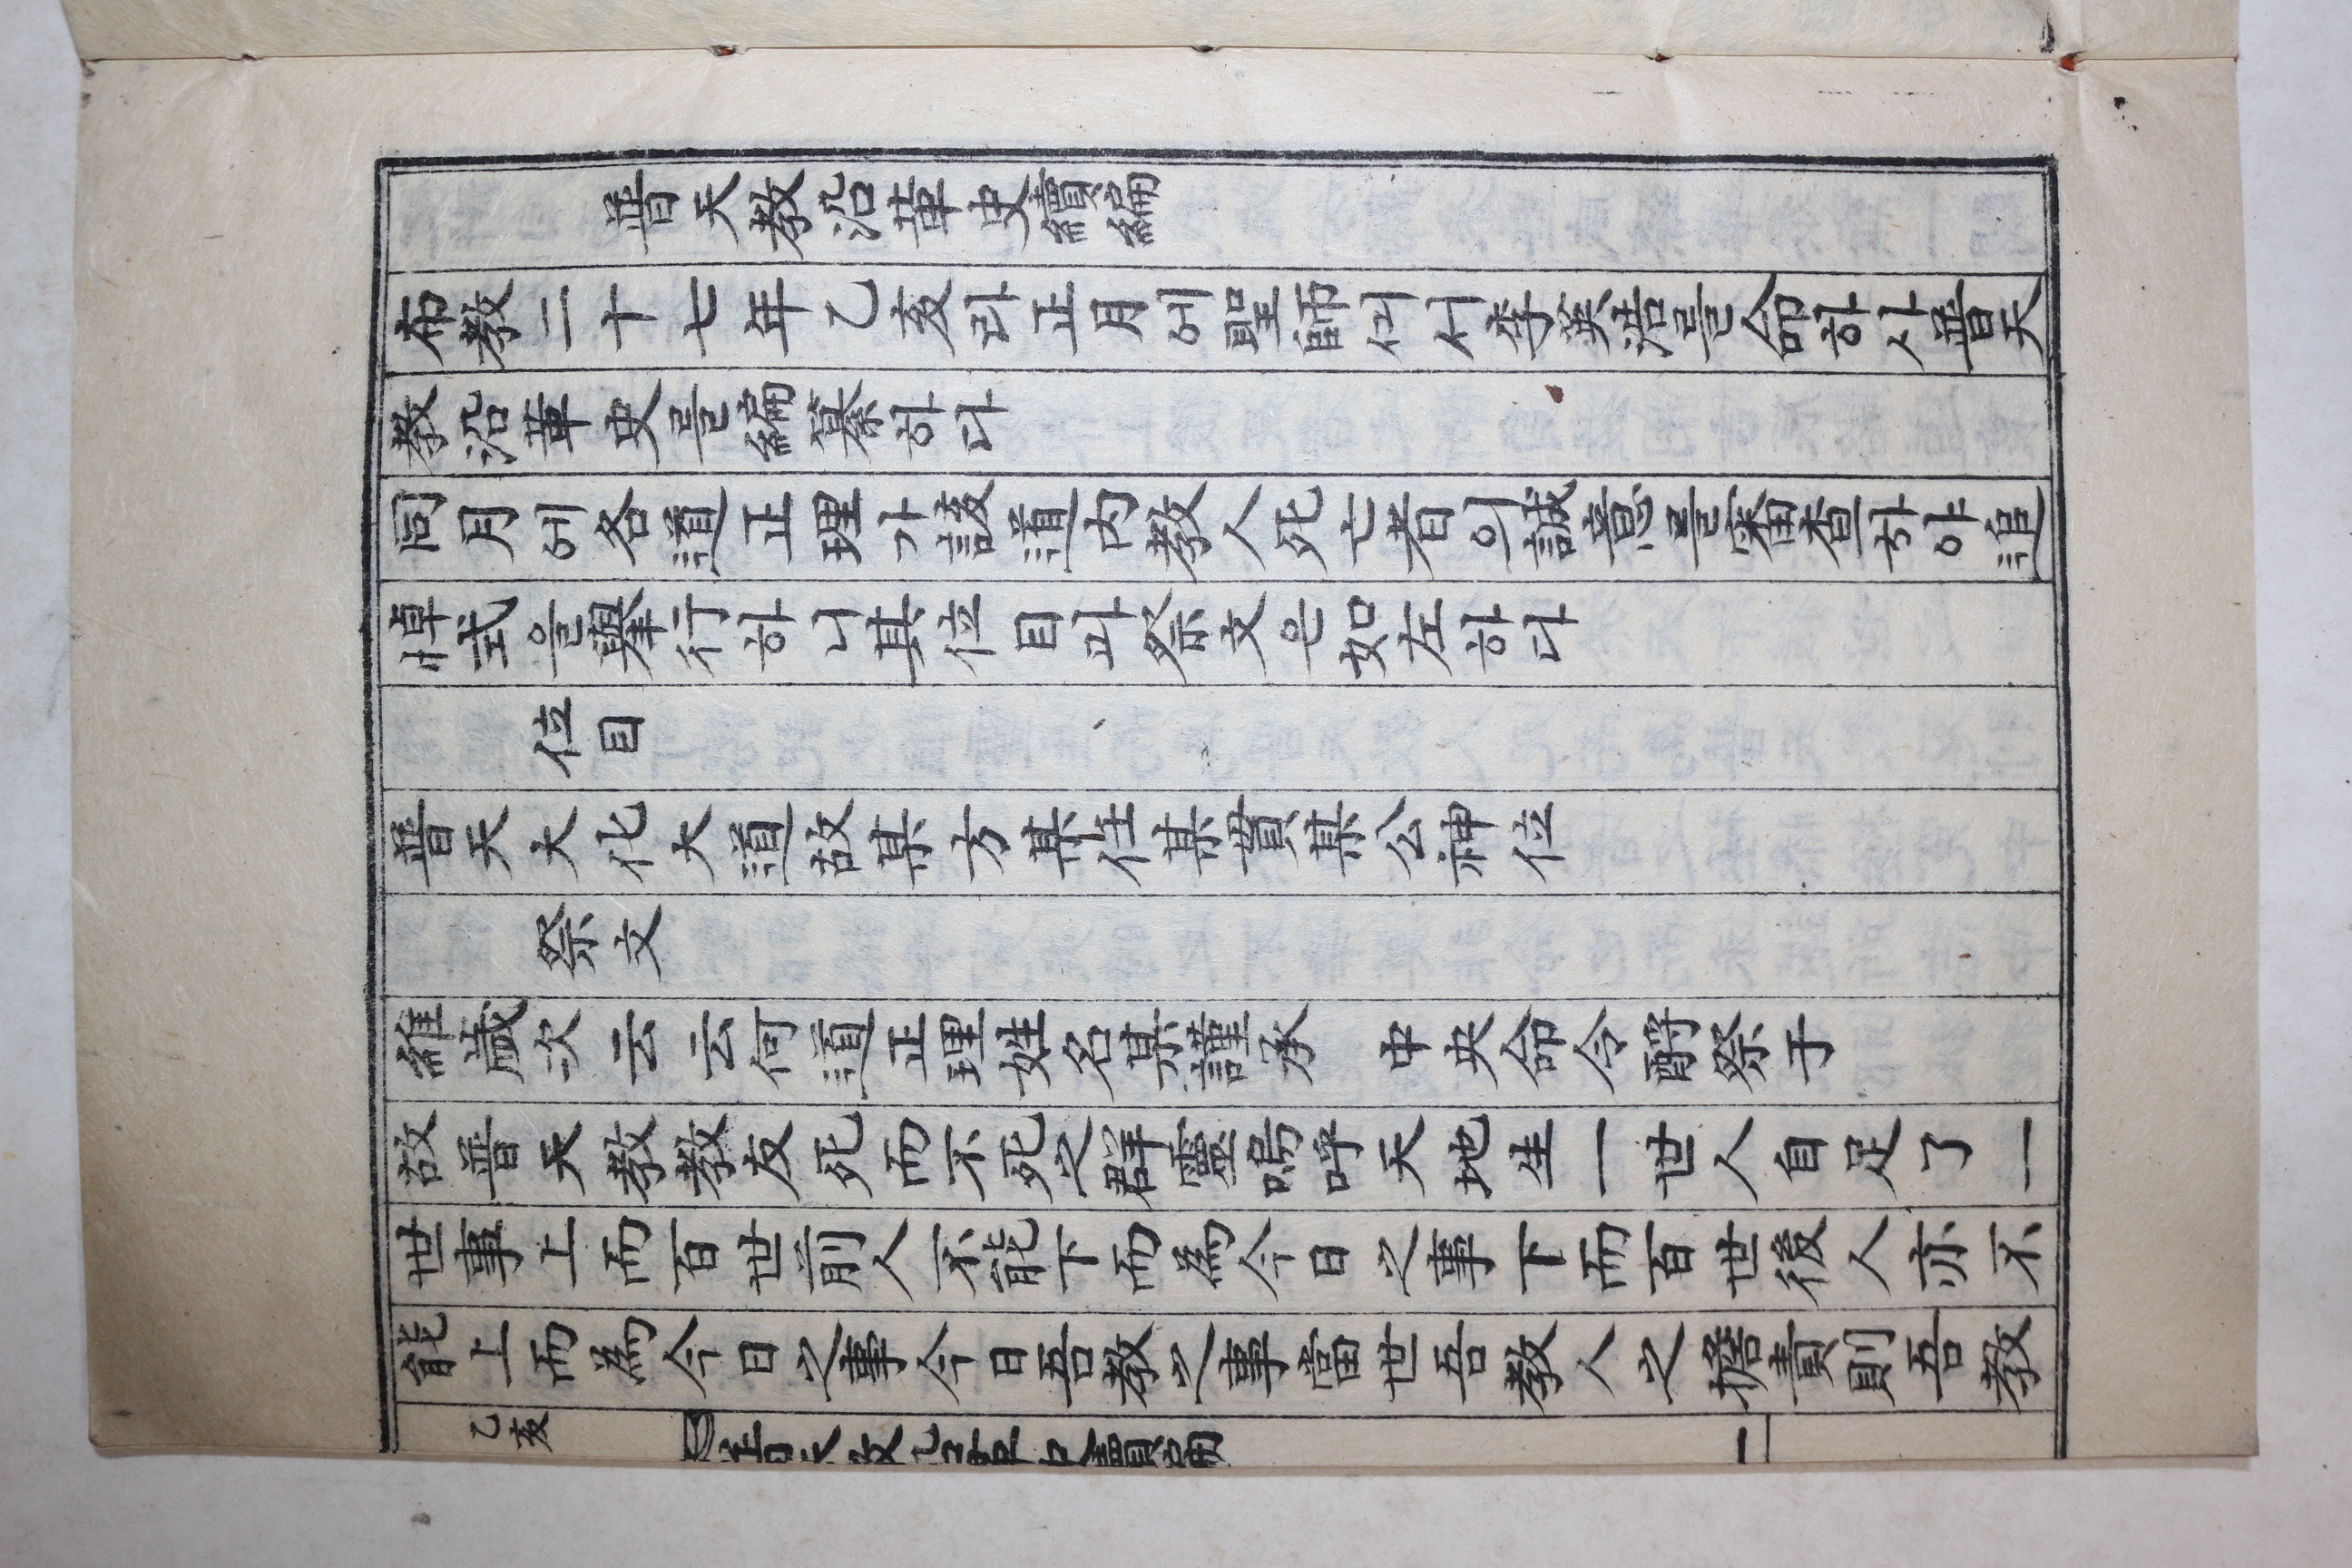 普天教沿革史續編
布教二十七年乙亥라正月에聖師ᄭᅦ서李英浩를命하사普天
教沿革史를編纂하다
同月에各道正理가該道內教人死亡者의誠意를審査하야追
悼式을擧行하니其位目과祭文은如左하다
位目
普天大化大道故某方某任某貫某公神位
祭文
維歲次云云何道正理姓名某謹承 中央命令酹祭于
故普天教教友死而不死之群靈嗚呼天地生一世人自足了一
世事上而百世前人不能下而爲今日之事下而百世後人亦不
能上而爲今日之事今日吾教之事當世吾教人之擔責則吾教
乙亥 普天教沿革史續編 一